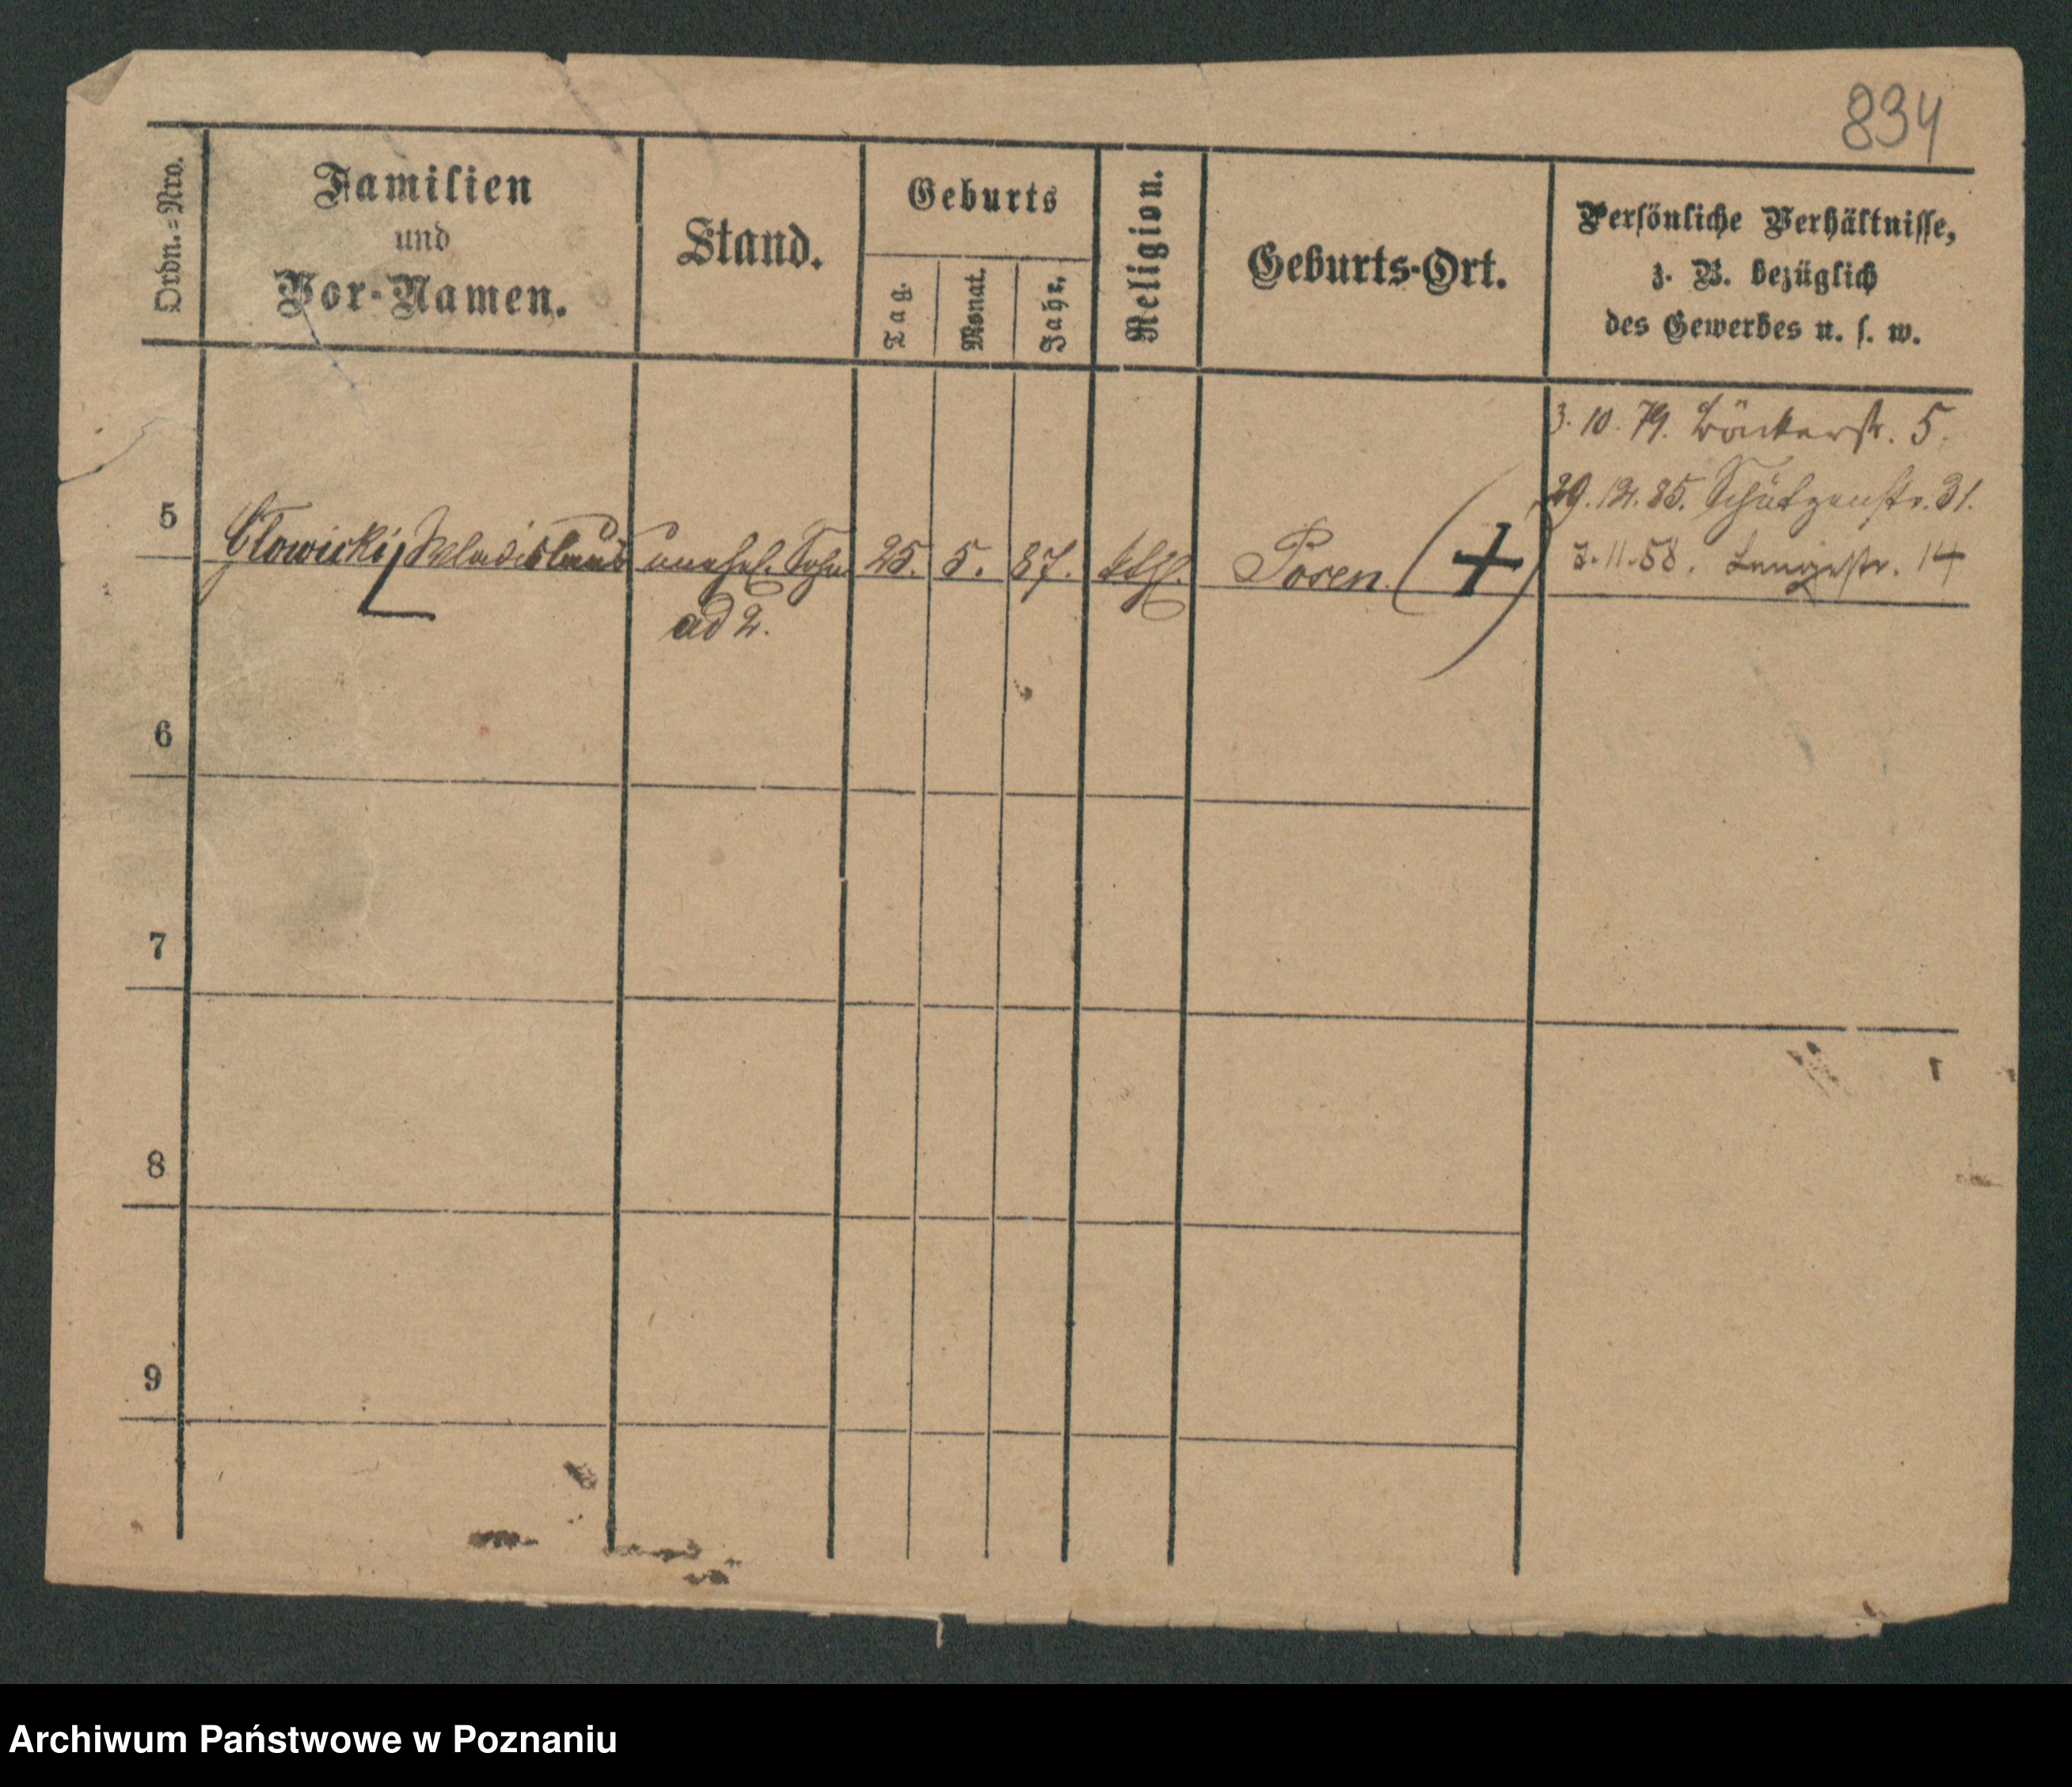 834
Ordn.=Nro.
Familien
und
Vor-Namen.
Stand.
Geburts
Tag.
Monat.
Jahr.
Religion.
Geburts-Ort.
Persönliche Verhältnisse,
z. B. bezüglich
des Gewerbes u. s. w.
3. 10. 79. Bäckerstr. 5.
29. 12. 85. Schützenstr. 31.
5 Glowicki, Wladislaus unehel. Sohn 25. 5. 87. kth. Posen. (+) 11. 58. Langestr. 14
ad 2.
6
7
8
9
Archiwum Państwowe w Poznaniu